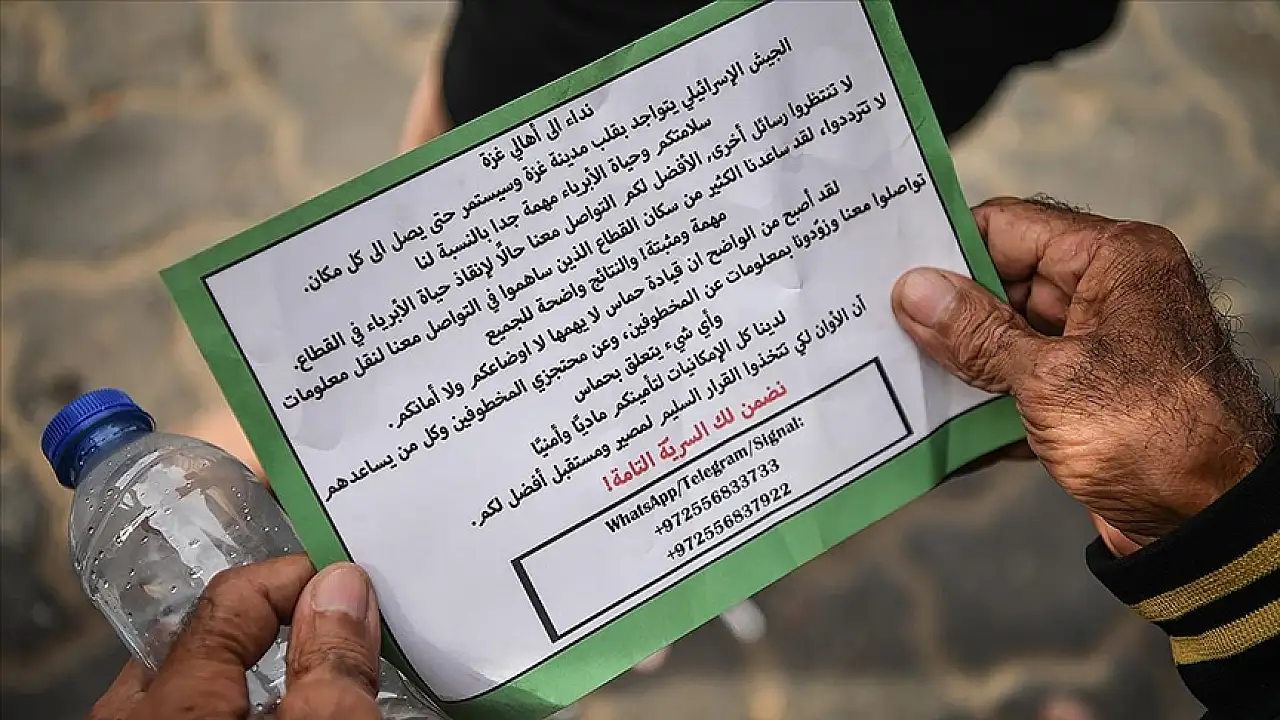 نداء الى أهالي غزة
الجيش الإسرائيلي يتواجد بقلب مدينة غزة وسيستمر حتى يصل الى كل مكان.
سلامتكم وحياة الأبرياء مهمة جدا بالنسبة لنا
لا تنتظروا رسائل أخرى، الأفضل لكم التواصل معنا حالًا لإنقاذ حياة الأبرياء في القطاع.
لا تترددواء لقد ساعدنا الكثير من سكان القطاع الذين ساهموا في التواصل معنا لنقل معلومات
مهمة ومثبتة! والنتائج واضحة للجميع
لقد أصبح من الواضح ان قيادة حماس لا يهمها لا اوضاعكم ولا أمانكم.
تواصلوا معنا وزوّدونا بمعلومات عن المخطوفين، وعن محتجزي المخطوفين وكل من يساعدهم
وأي شيء يتعلق بحماس
لدينا كل الإمكانيات لتأمينكم ماديًا وأمنيًا
أن الأوان لكي تتخذوا القرار السليم لمصير ومستقبل أفضل لكم.
نضمن لك السريّة التامة!
WhatsApp/Telegram/Signal:
+972556833733
+972556837922